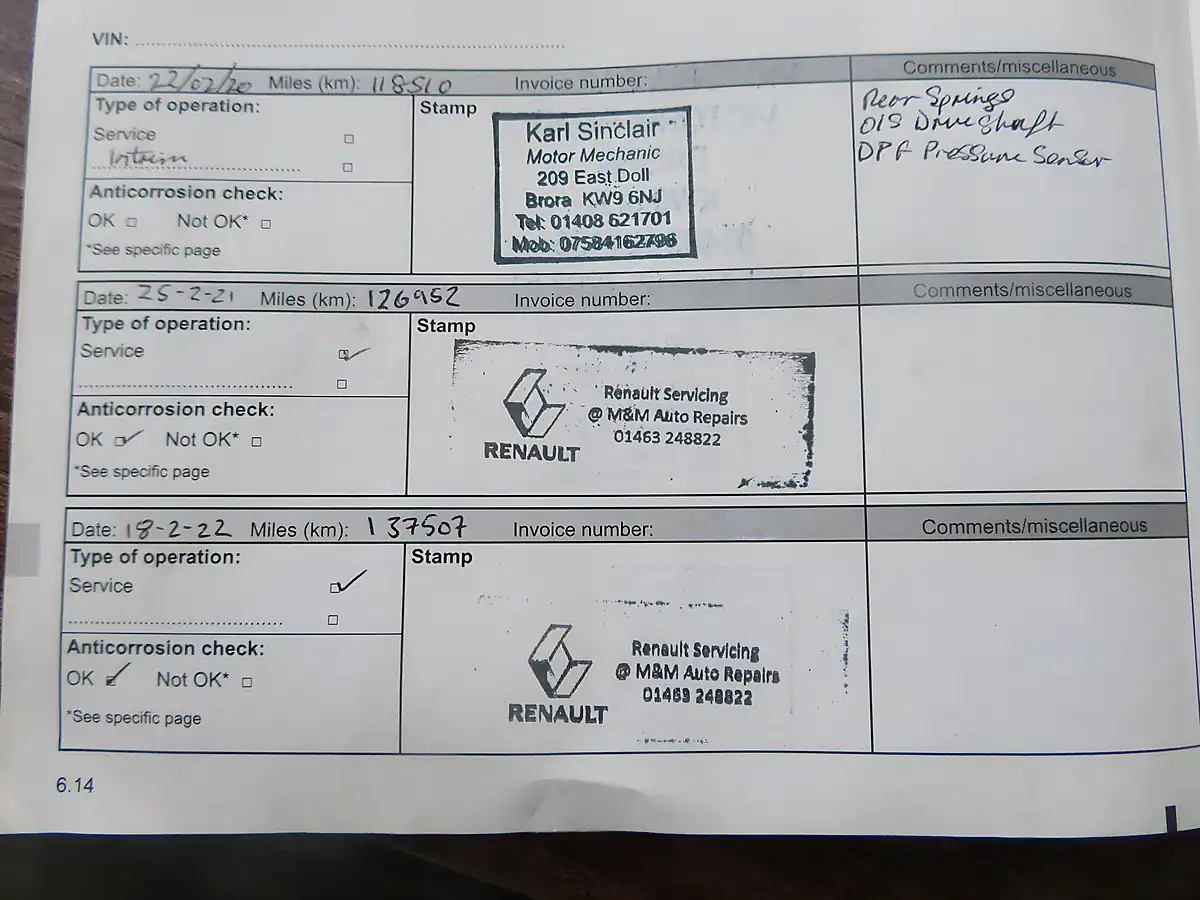 VIN:
Date: 22/02/20 Miles (km): 118510 Invoice number: Comments/miscellaneous
Type of operation: Stamp
Service
Intrim
Anticorrosion check:
OK Not OK*
*See specific page
Karl Sinclair
Motor Mechanic
209 East Doll
Brora KW9 6NJ
Tel: 01408 621701
Mob: 07584162796
Rear Springs
O/S Driveshaft
DPF Pressure Sensor
Date: 25-2-21 Miles (km): 126952 Invoice number: Comments/miscellaneous
Type of operation: Stamp
Service
Anticorrosion check:
OK Not OK*
*See specific page
RENAULT
Renault Servicing
@ M&M Auto Repairs
01463 248822
Date: 18-2-22 Miles (km): 137507 Invoice number: Comments/miscellaneous
Type of operation: Stamp
Service
Anticorrosion check:
OK Not OK*
*See specific page
RENAULT
Renault Servicing
@ M&M Auto Repairs
01463 248822
6.14